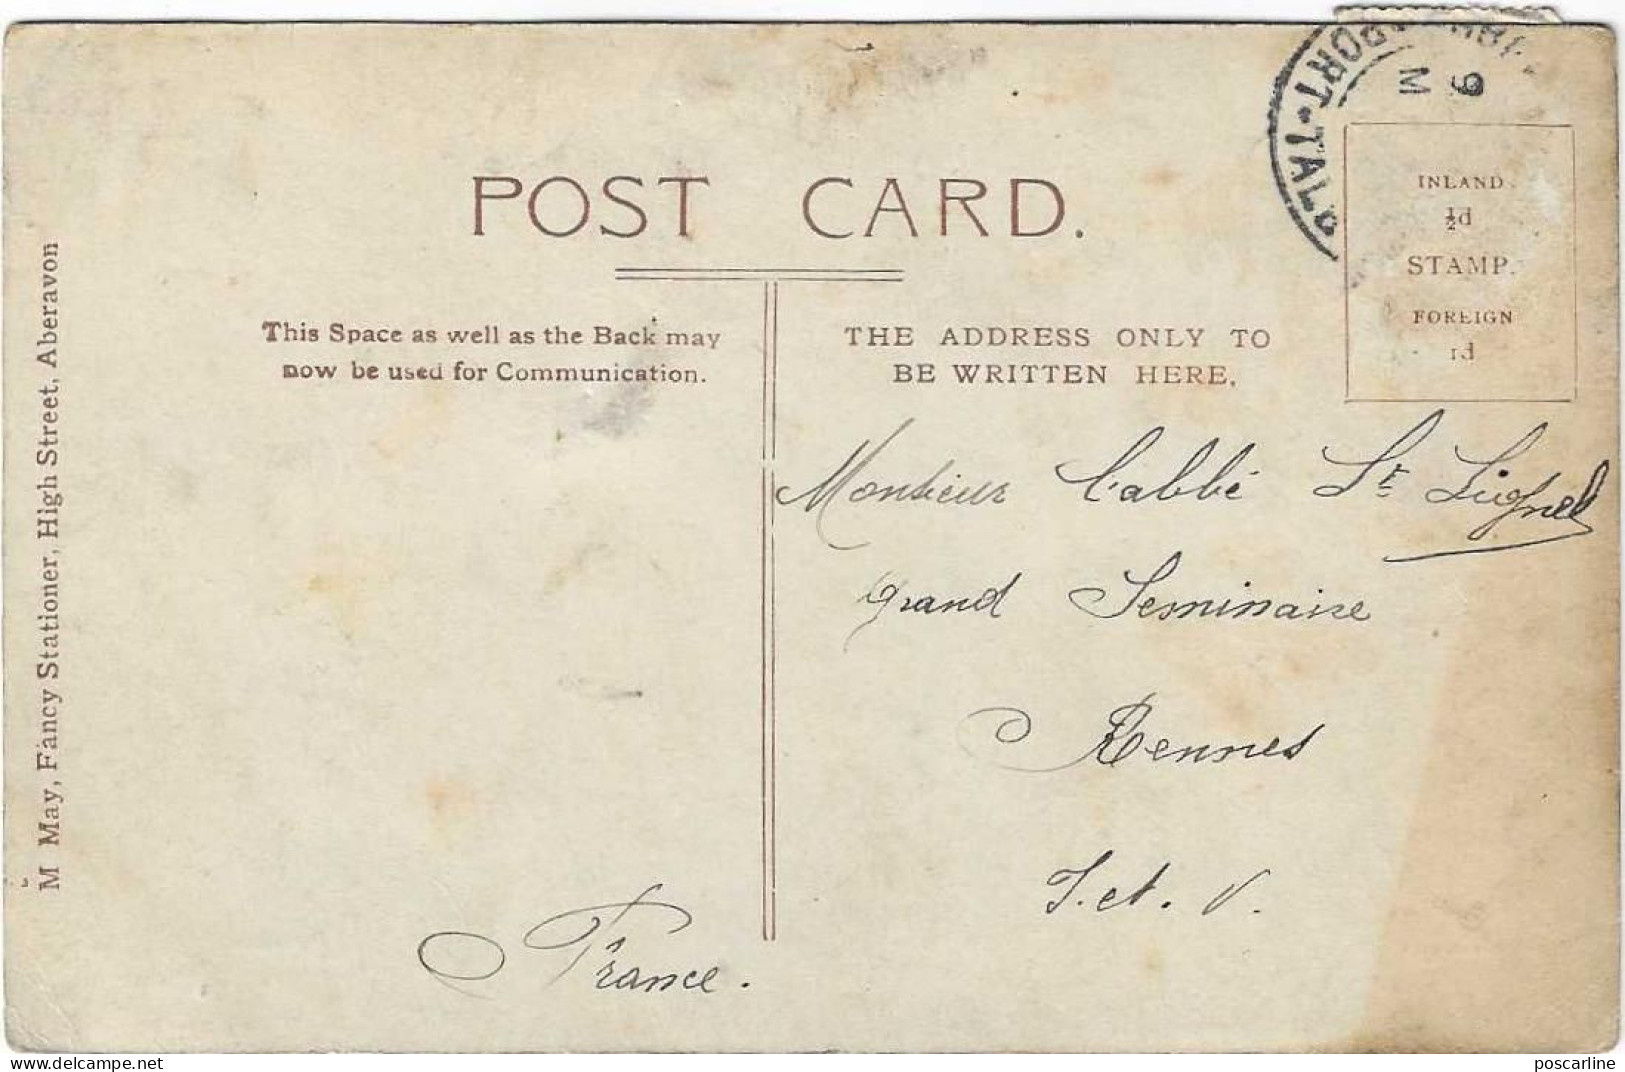 PORT·TALB
9
M
POST CARD.
This Space as well as the Back may
now be used for Communication.
THE ADDRESS ONLY TO
BE WRITTEN HERE.
INLAND
½d
STAMP.
FOREIGN
1d
M May, Fancy Stationer, High Street, Aberavon
Monsieur l'abbé St
grand Seminaire
Rennes
I. et. V.
France.
https://www.delcampe.net
poscarline